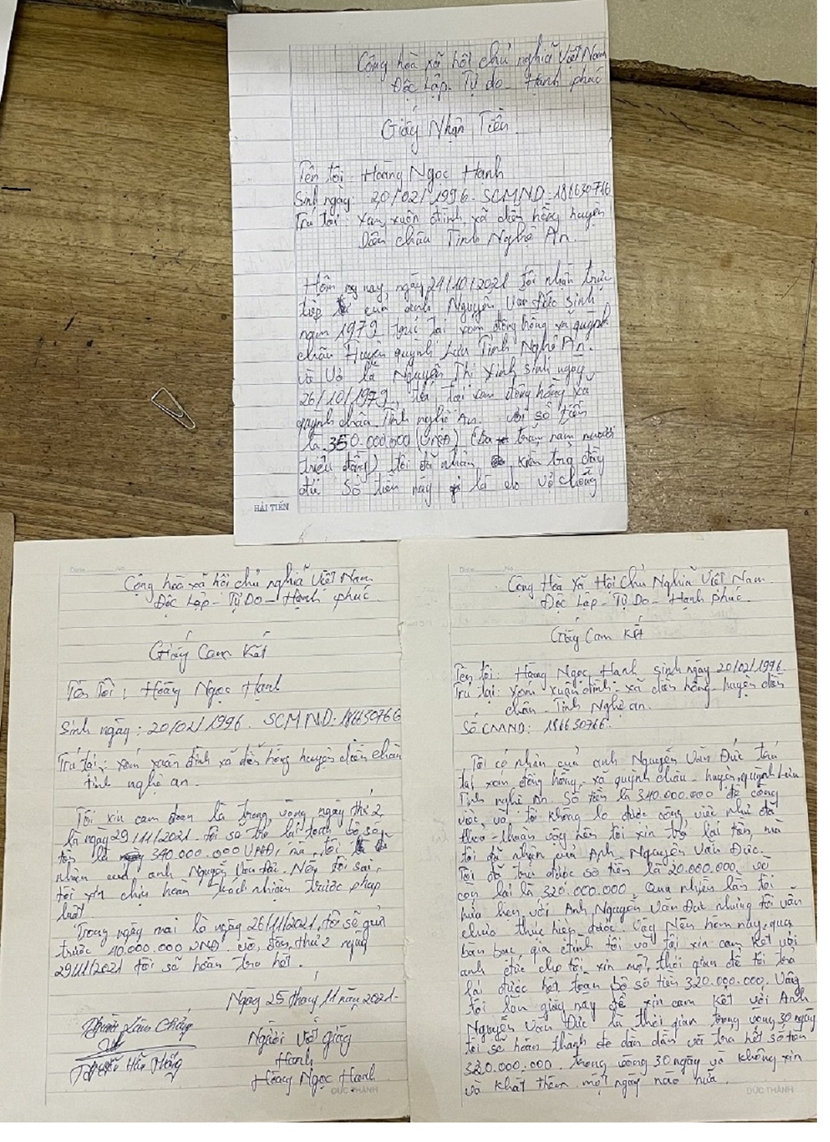 Cộng hoà xã hội chủ nghĩa Việt Nam
Độc Lập - Tự do - Hạnh phúc
Giấy Nhận Tiền
Tên tôi: Hoàng Ngọc Hạnh
Sinh ngày: 20/02/1996. SCMND: 186630766
Trú tại: xóm xuân đình xã diễn hồng huyện
Diễn châu Tỉnh Nghệ An.
Hôm nay, ngày 24/10/2021 tôi nhận trực
tiếp của anh Nguyễn Văn Đức sinh
năm 1979 trú tại xóm đồng hồng xã quỳnh
châu Huyện quỳnh Lưu Tỉnh Nghệ An.
và Vợ là Nguyễn Thị Xinh sinh ngày
26/10/1979, trú tại xóm đồng hồng xã
quỳnh châu Tỉnh nghệ An. với số tiền
là 350.000.000 (VNĐ) (Ba trăm năm mươi
triệu đồng) tôi đã nhận kiểm tra đầy
đủ số tiền này là do vợ chồng
HẢI TIẾN
Cộng hòa xã hội chủ nghĩa Việt Nam
Độc Lập - Tự Do - Hạnh phúc
Giấy Cam Kết
Tên Tôi: Hoàng Ngọc Hạnh
Sinh ngày: 20/02/1996. SCMND: 186630766
Trú tại: xóm xuân đình xã diễn hồng huyện diễn châu
tỉnh nghệ an.
Tôi xin cam đoan là trong vòng ngày thứ 2
là ngày 29/11/2021 tôi sẽ trả lại toàn bộ số
tiền là 340.000.000 VNĐ, mà tôi
nhận của anh Nguyễn Văn Đức. Nếu tôi sai,
tôi xin chịu hoàn trách nhiệm trước pháp
luật
Trong ngày mai là ngày 26/11/2021, tôi sẽ gửi
trước 10.000.000 VNĐ. và, đến, thứ 2 ngày
29/11/2021 tôi sẽ hoàn trả hết.
Ngày 25 tháng 11 năm 2021.
Người làm chứng
Người viết giấy
Hạnh
Hoàng Ngọc Hạnh
ĐỨC THÀNH
Cộng Hòa Xã Hội Chủ Nghĩa Việt Nam
Độc Lập - Tự Do - Hạnh phúc.
Giấy Cam Kết
Tên tôi: Hoàng Ngọc Hạnh sinh ngày 20/02/1996
Trú tại: xóm xuân đình, xã diễn hồng, huyện diễn
châu. Tỉnh Nghệ an.
Số CMND: 186630766.
Tôi có nhận của anh Nguyễn Văn Đức trú
tại xóm đồng hồng, xã quỳnh châu huyện quỳnh Lưu
Tỉnh nghệ An. Số tiền là 340.000.000 để công
việc, vì tôi không lo được công việc như đã
thỏa thuận nên tôi xin trả lại tiền mà
tôi đã nhận của Anh Nguyễn Văn Đức.
Tôi đã trả được số tiền là 20.000.000 và
còn lại là 320.000.000, Qua nhiều lần tôi
hứa hẹn với Anh Nguyễn Văn Đức nhưng tôi vẫn
chưa thực hiện được. Vậy Nên hôm nay, qua
bàn bạc, gia đình tôi và tôi xin cam kết với
anh Đức cho tôi xin một thời gian để tôi trả
lại được hết toàn bộ số tiền 320.000.000. Vậy
tôi làm giấy này để xin cam kết với Anh
Nguyễn Văn Đức là thời gian trong vòng 30 ngày
tôi sẽ hoàn thành dần dần và trả hết số tiền
320.000.000. trong vòng 30 ngày và không xin
và khất thêm một ngày nào nữa.
ĐỨC THÀNH